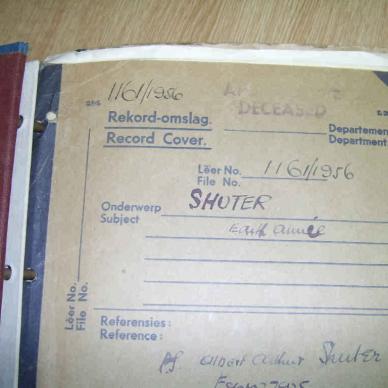 1161/1956
DECEASED
Rekord-omslag.
Record Cover.
Departeme
Department
Lêer No. 1161/1956
File No.
Onderwerp SHUTER
Subject
Edith Annie
Lêer No.
File No.
Referensies:
Reference:
Albert Arthur Shuter